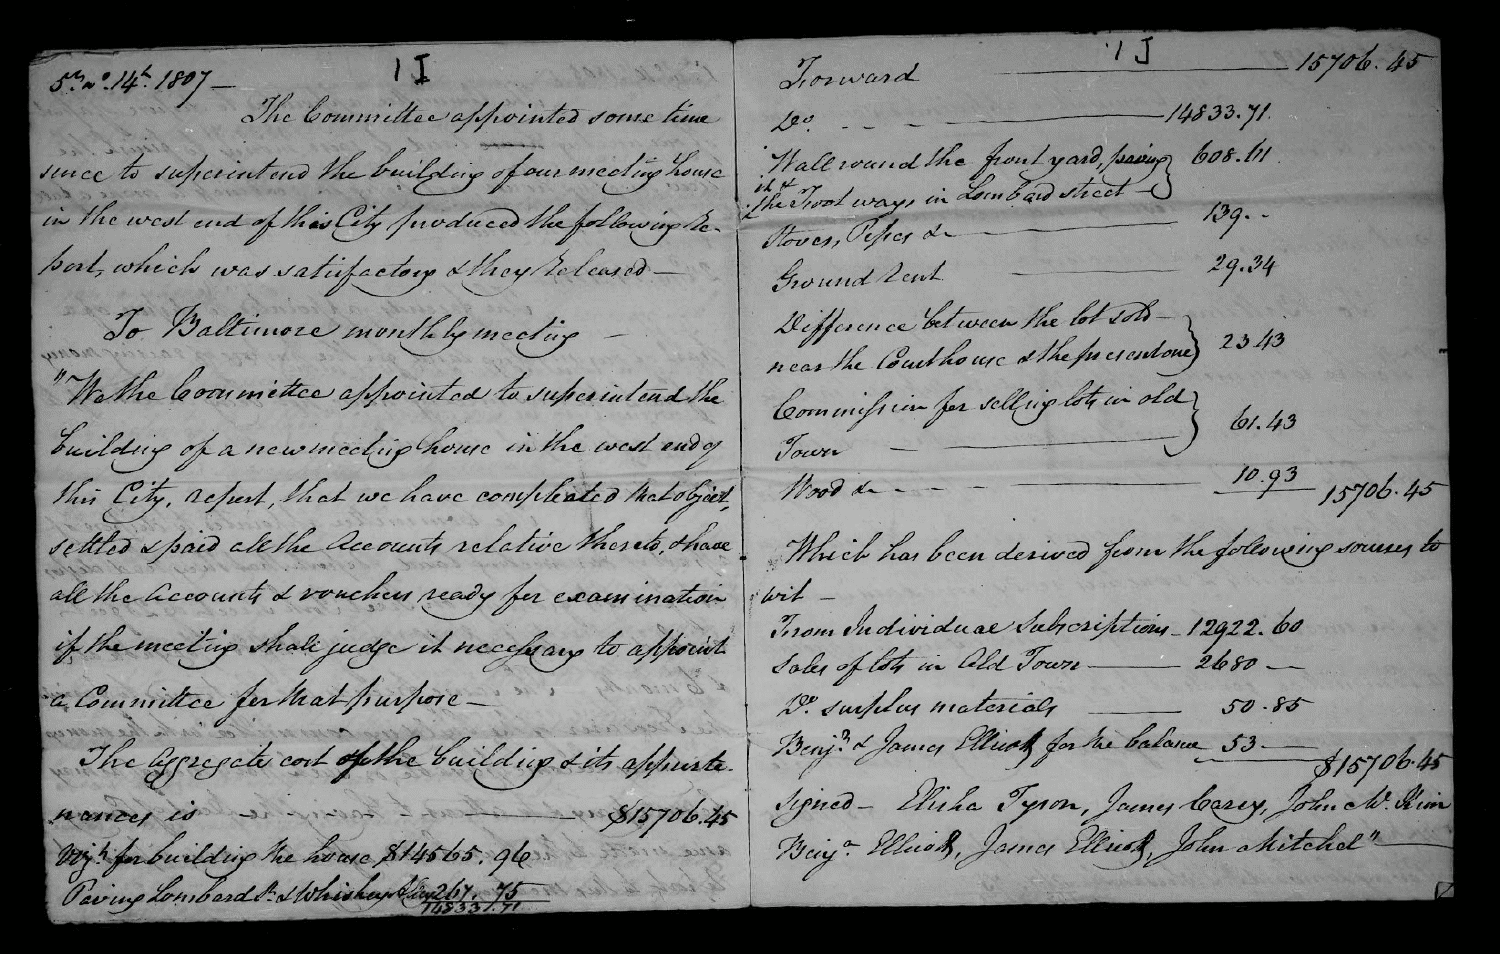 1 I
5th mo. 14th. 1807 —
The Committee appointed some time
since to superintend the building of our meeting house
in the west end of this City produced the following Re-
port, which was satisfactory & they Released —
To Baltimore monthly meeting —
"We the Committee appointed to superintend the
building of a new meeting house in the west end of
this City, report, that we have compleated that object,
settled & paid all the Accounts relative thereto, & have
all the Accounts & vouchers ready for examination
if the meeting shall judge it necessary to appoint
a Committee for that purpose —
The Aggregate cost of the building & its appurte-
nances is — $15706.45
Vizt. for building the house $14565.96
Paving Lombard St. & Whiskey Alley 267.75
14833.71
1 J
Forward — 15706.45
Do. — 14833.71.
Wall round the front yard, paving } 608.61
the Foot ways in Lombard street —
Stoves, Pipes &c — 139. -
Ground Rent — 29.34
Difference between the lot sold —
near the Courthouse & the present one } 23.43
Commission for selling lots in old
Town — } 61.43
Wood &c — 10.93 15706.45
Which has been derived from the following sourses to
wit —
From Individual Subscriptions — 12922.60
Sales of lots in Old Town — 2680 —
Do. surplus materials — 50.85
Benjn. & James Ellicott for the balance 53 —
$15706.45
Signed — Elisha Tyson, James Carey, John W.
Benjn. Ellicott, James Ellicott, John Mitchel" —